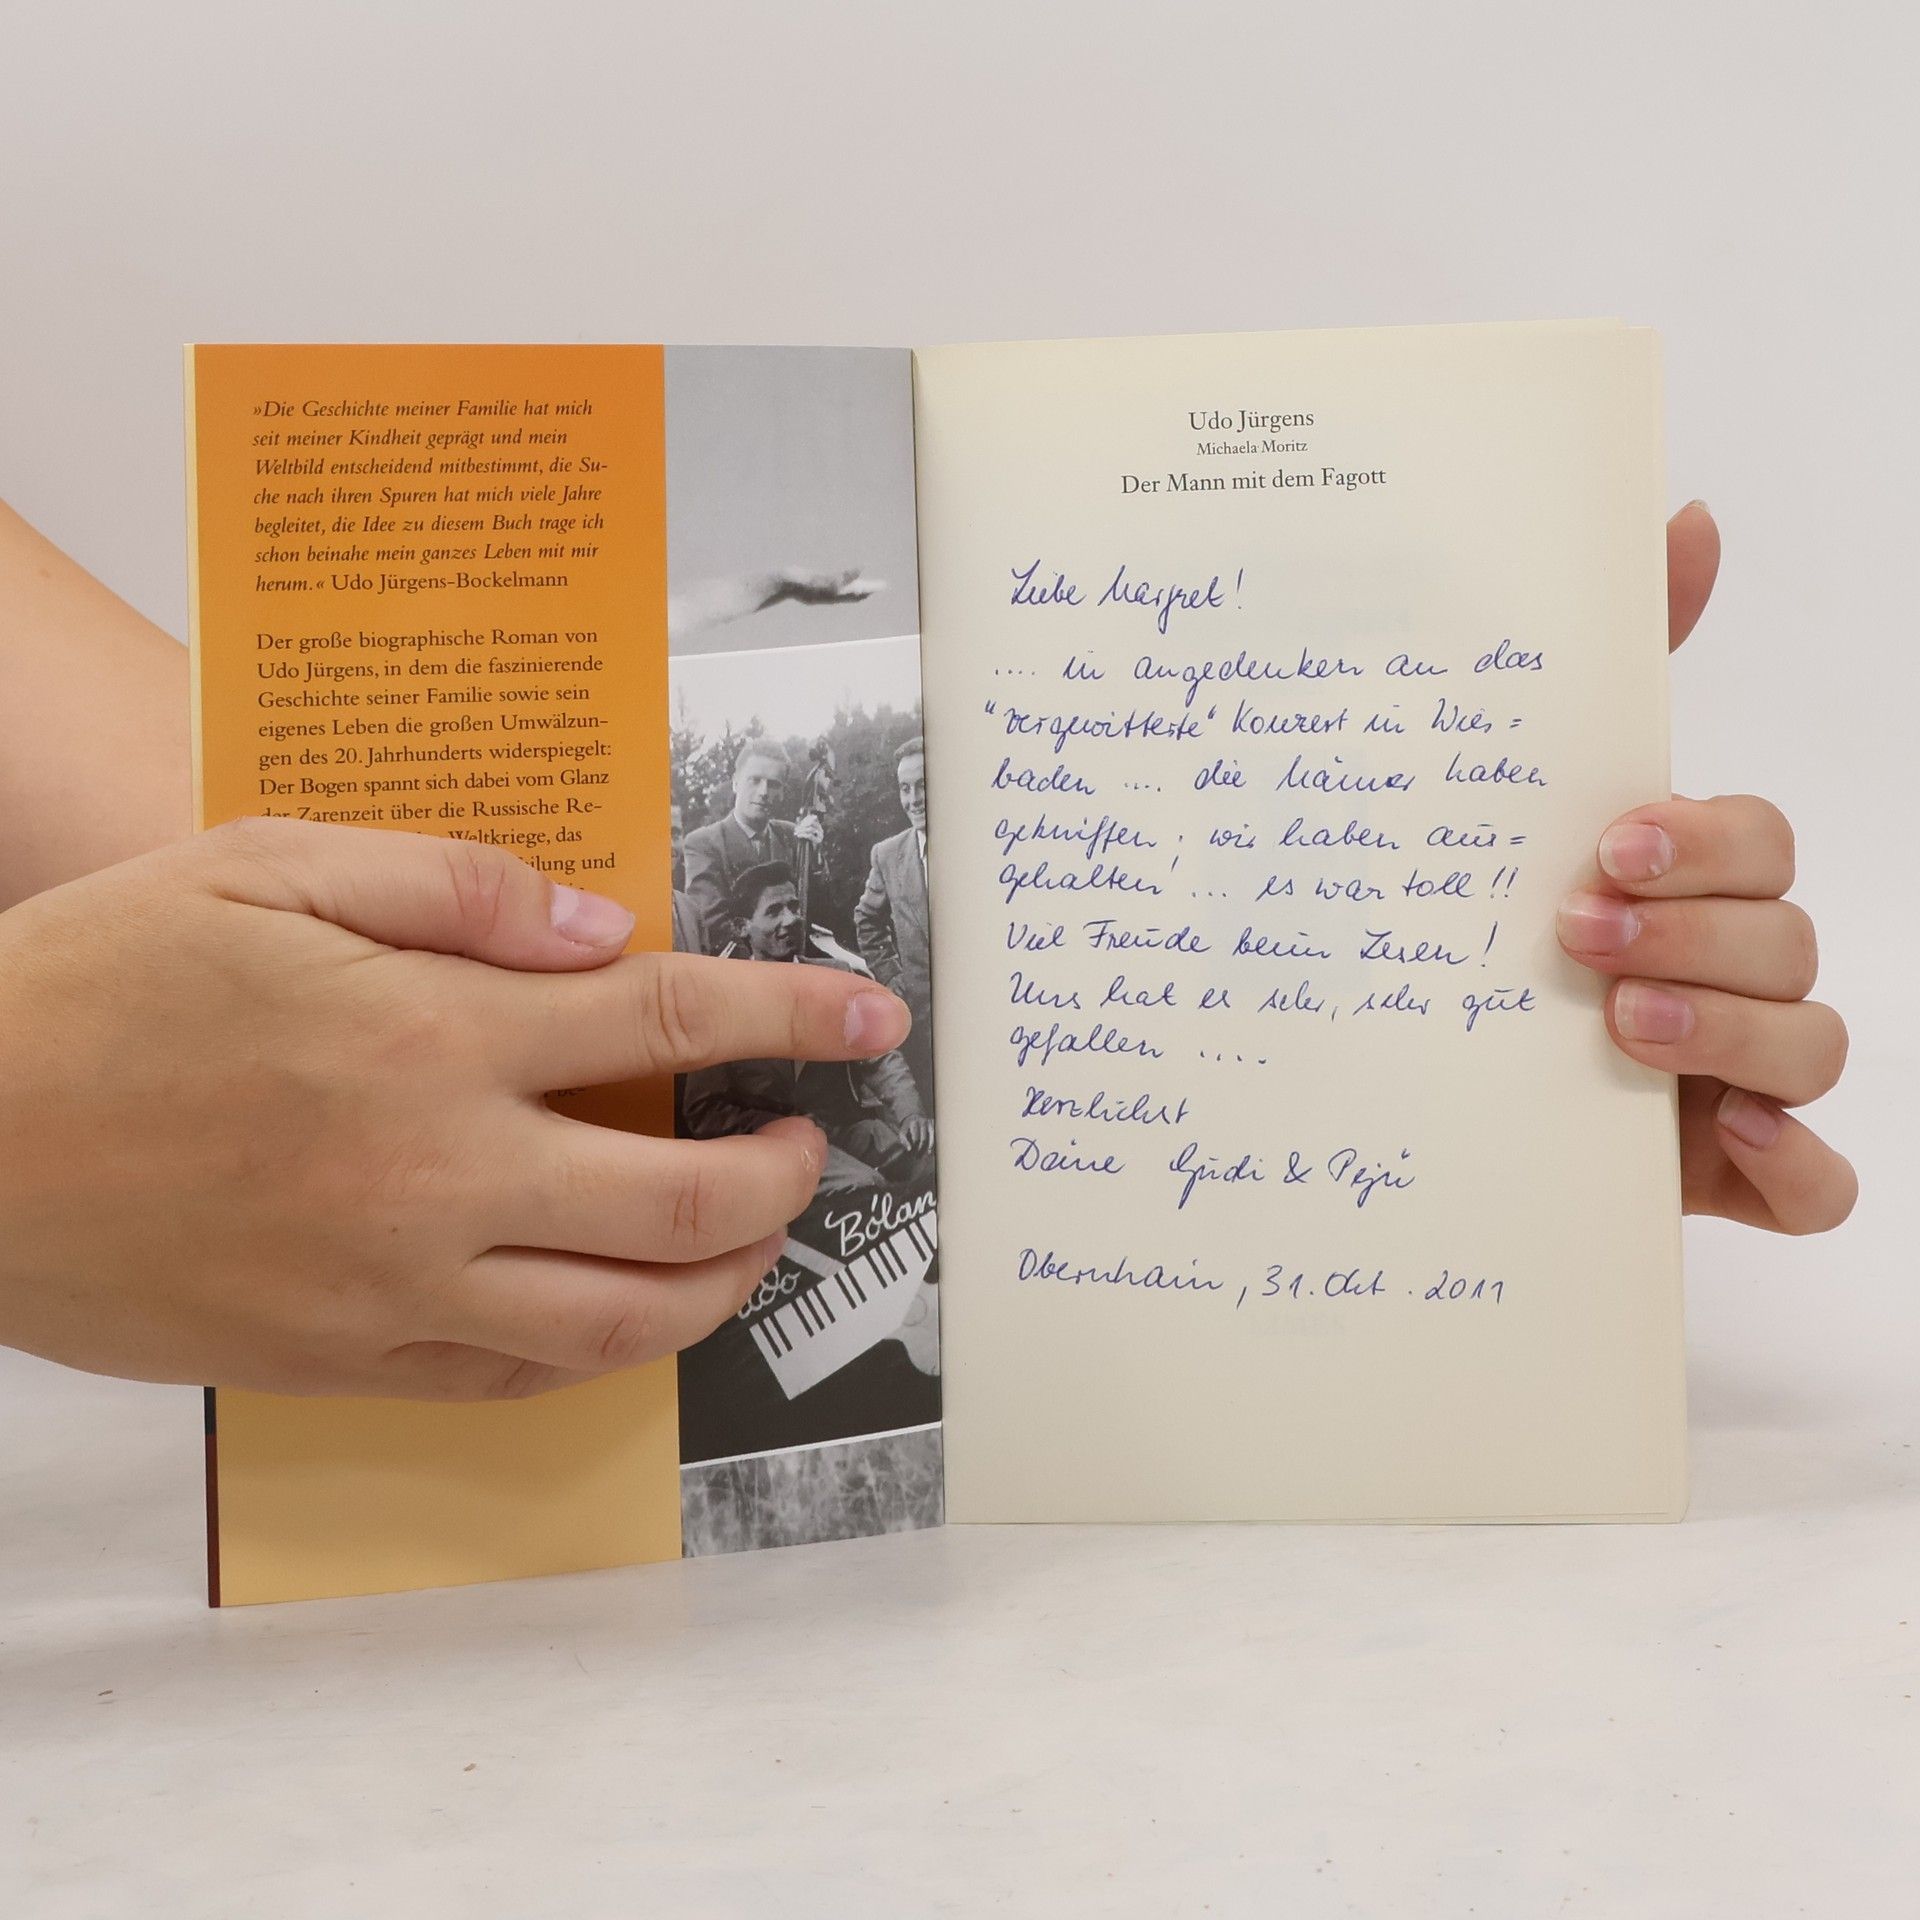 »Die Geschichte meiner Familie hat mich
seit meiner Kindheit geprägt und mein
Weltbild entscheidend mitbestimmt, die Su-
che nach ihren Spuren hat mich viele Jahre
begleitet, die Idee zu diesem Buch trage ich
schon beinahe mein ganzes Leben mit mir
herum.« Udo Jürgens-Bockelmann
Der große biographische Roman von
Udo Jürgens, in dem die faszinierende
Geschichte seiner Familie sowie sein
eigenes Leben die großen Umwälzun-
gen des 20. Jahrhunderts widerspiegelt:
Der Bogen spannt sich dabei vom Glanz
der Zarenzeit über die Russische Re-
Weltkriege, das
und
Udo
Bólan
Udo Jürgens
Michaela Moritz
Der Mann mit dem Fagott
Liebe Margret!
.... in angedenken an das
"vergewitterte" Konzert in Wies=
baden .... die Männer haben
gekniffen, wir haben aus=
gehalten ... es war toll!!
Viel Freude beim Lesen!
Uns hat es sehr, sehr gut
gefallen ....
Herzlichst
Deine Gudi & Pejü
Obernhain, 31. Okt. 2011